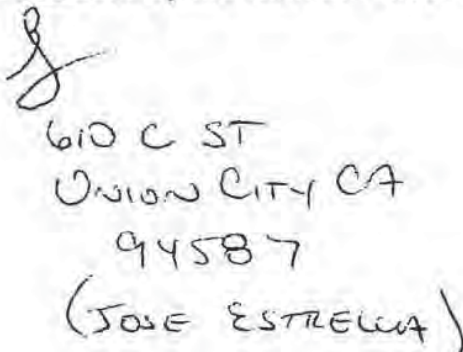 610 C ST
UNION CITY CA
94587
(JOSE ESTRELLA)